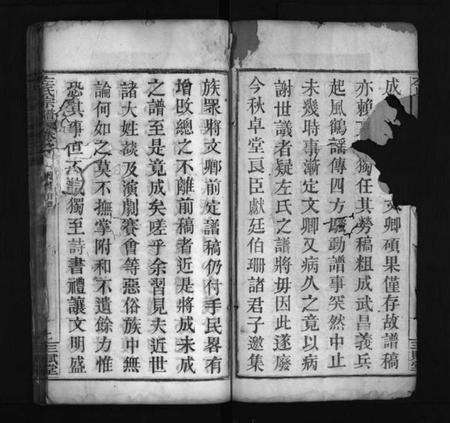 成文卿碩果僅存故譜稿
亦賴獨任其勞稿粗成武昌義兵
起風鶴謠傳四方騷動譜事突然中止
未幾時事漸定文卿又病久之竟以病
謝世議者疑左氏之譜將毋因此遂廢
今秋卓堂良臣獻廷伯珊諸君子邀集
族眾將文卿前定譜稿仍付手民畧有
增改總之不離前稿者近是將成未成
之譜至是竟成矣嗟乎余習見夫近世
諸大姓談及演劇賽會等惡俗族中無
論何如之莫不撫掌附和不遺餘力惟
恐其事但不獨至詩書禮讓文明盛
左氏宗譜
三